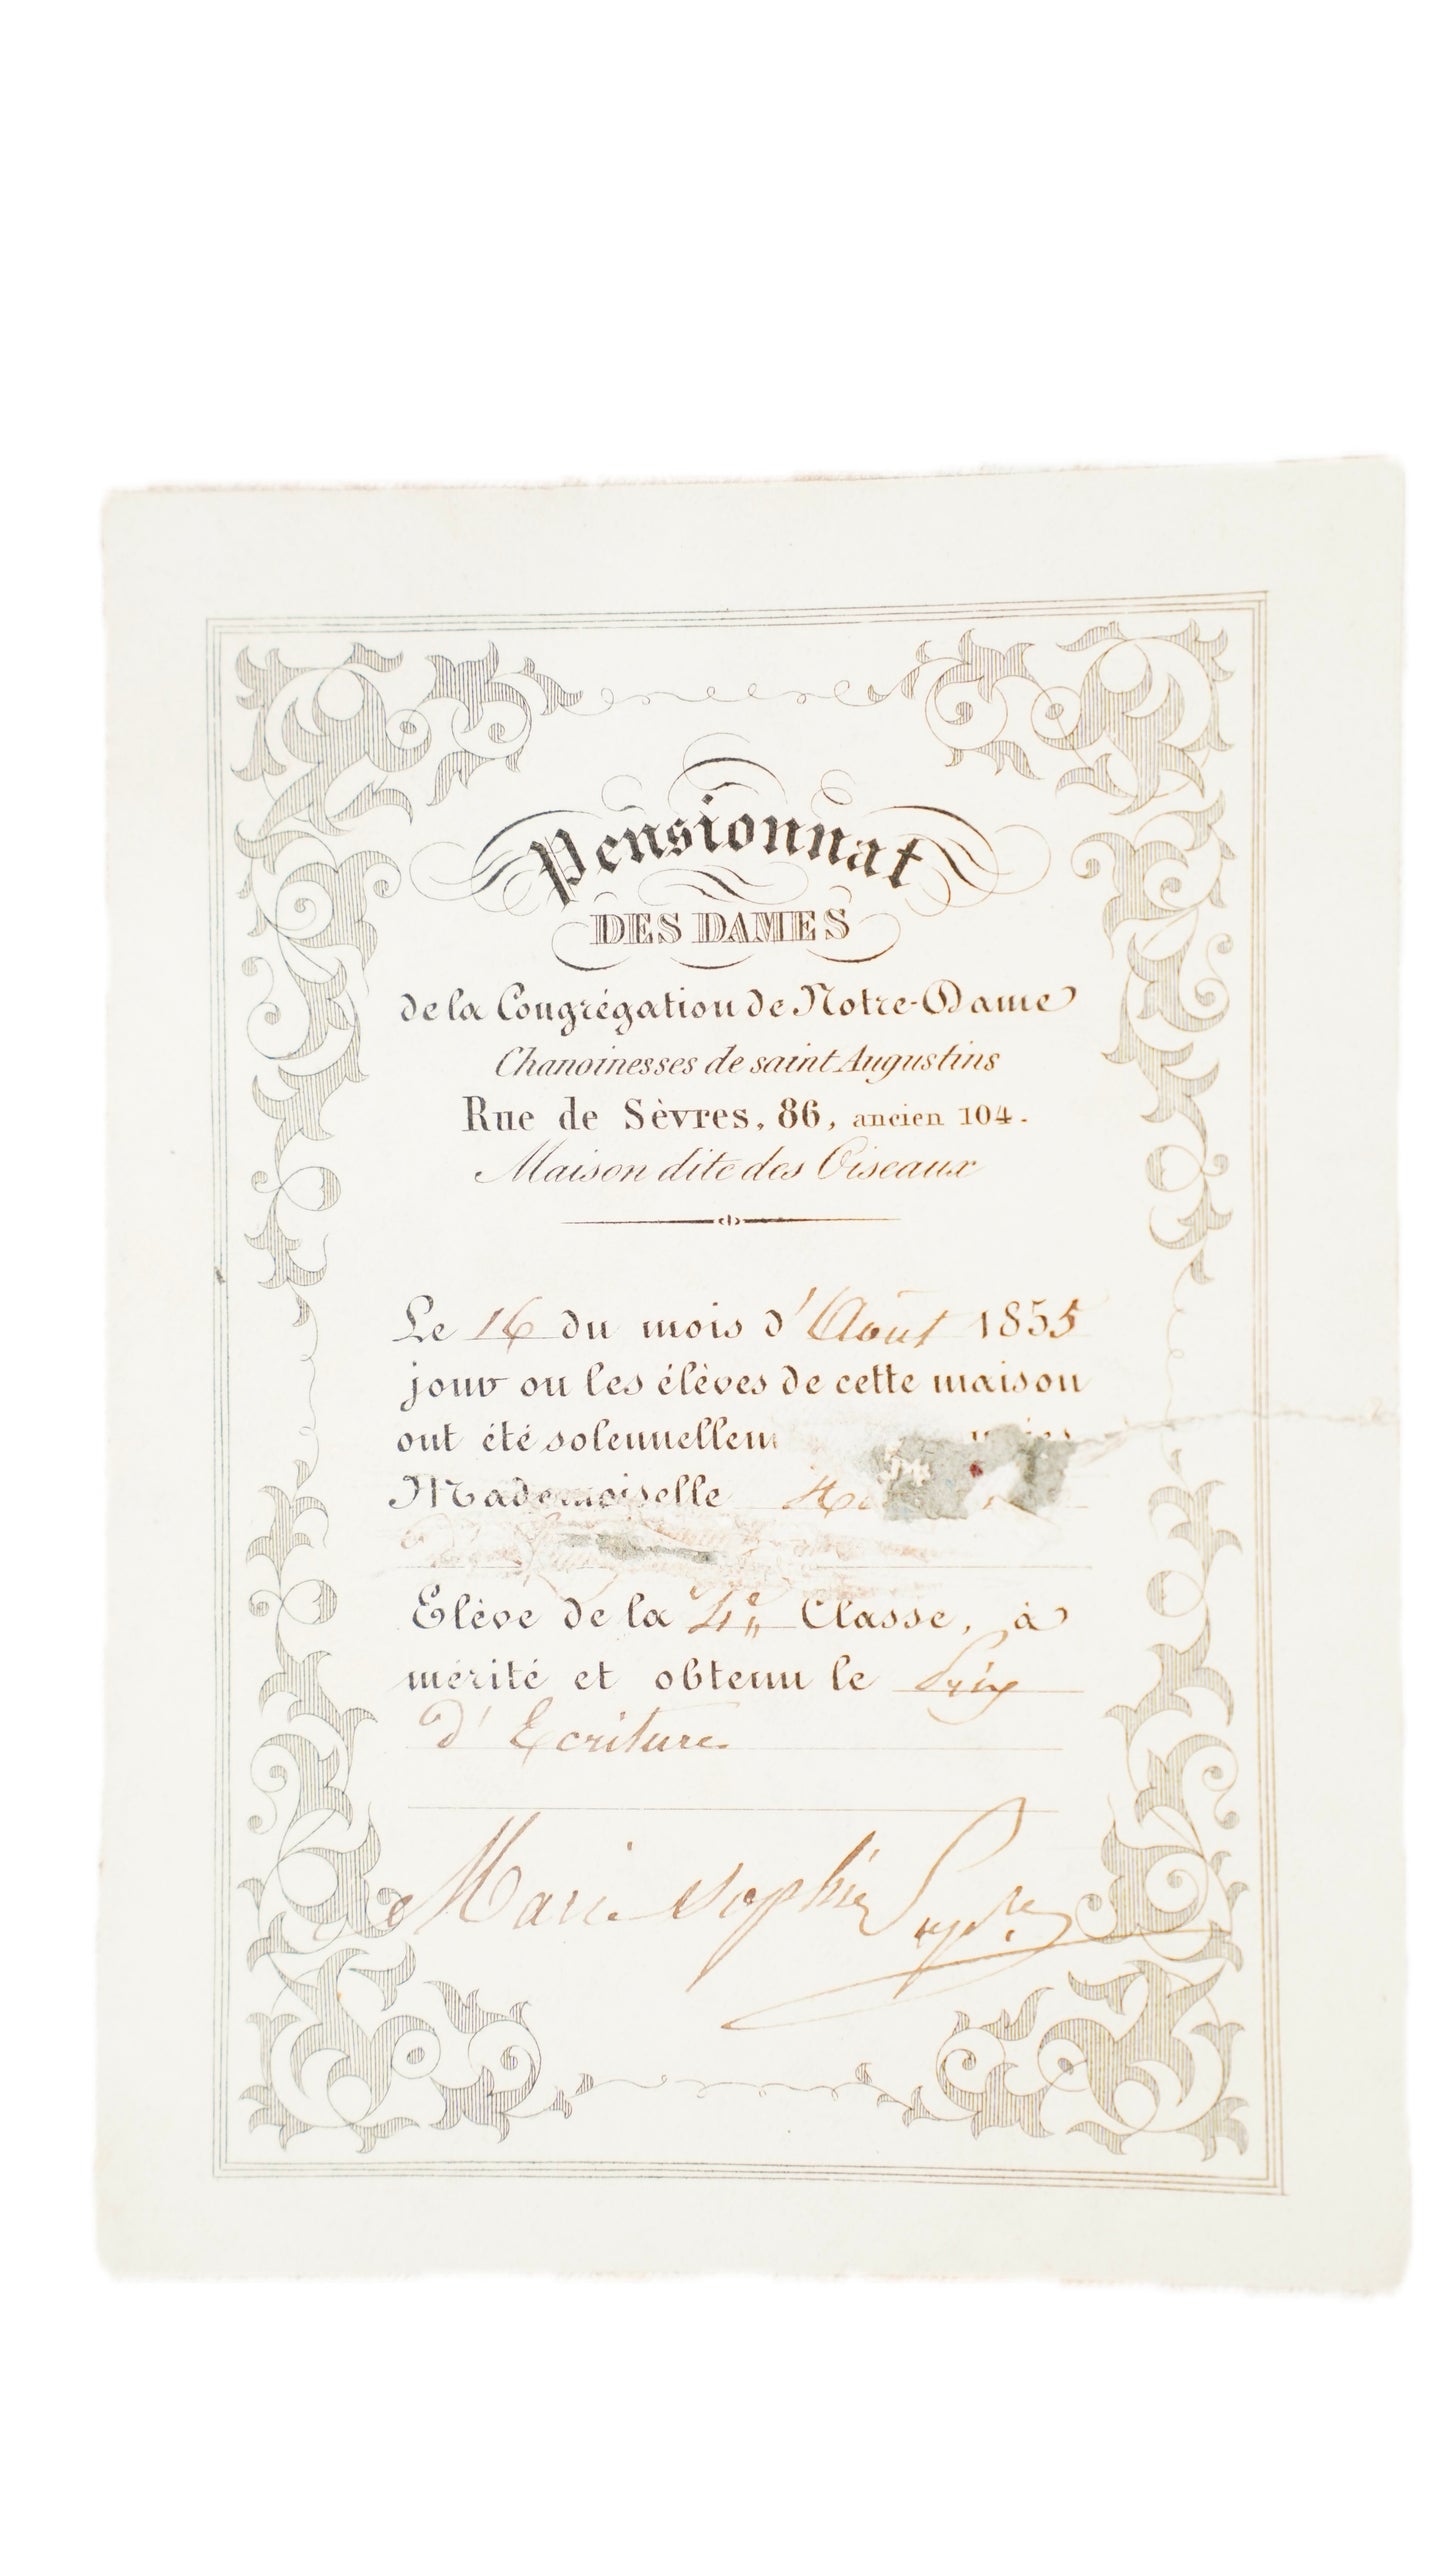 Pensionnat
DES DAMES
de la Congrégation de Notre-Dame
Chanoinesses de saint Augustins
Rue de Sèvres, 86, ancien 104.
Maison dite des Oiseaux
Le 16 du mois d'Août 1855
jour ou les élèves de cette maison
ont été solennellem
Mademoiselle
Elève de la 4e Classe, à
mérité et obtenu le Prix
d'Ecriture
Marie Sophie Supre